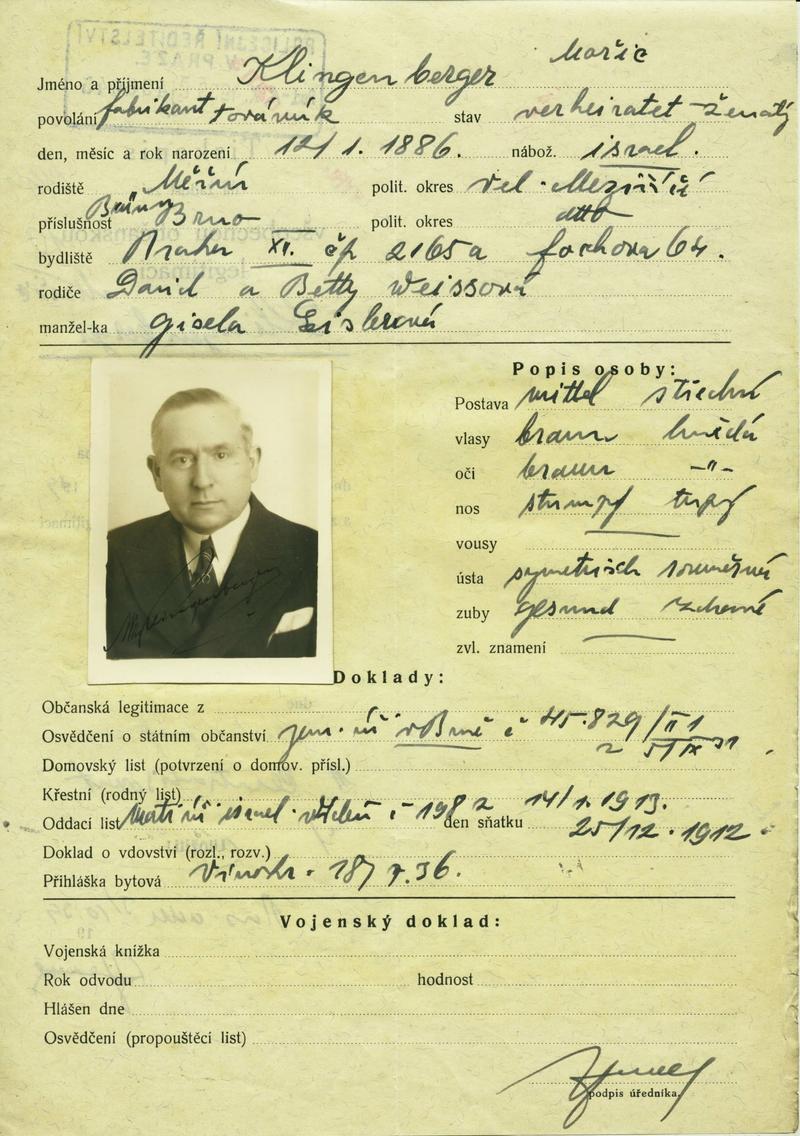 POLICEJNÍ ŘEDITELSTVÍ
V PRAZE
Mořic
Jméno a příjmení Klingenberger
povolání fabrikant továrník stav verheiratet ženatý
den, měsíc a rok narození 12/1. 1886. nábož. israel.
rodiště Měřín polit. okres vel. Meziříčí
příslušnost Brünn Brno polit. okres dtto
bydliště Praha XII. čp 2165a Fochova 64.
rodiče David a Betty Weissová
manžel-ka Gisela Eislerová
Popis osoby:
Postava mittel střední
vlasy braun hnědá
oči braun -"-
nos stumpf tupý
vousy
ústa symetrisch souměrná
zuby gesund zdravé
zvl. znamení
Doklady:
Občanská legitimace z
Osvědčení o státním občanství zem. úř. v Brně č 45.829/II 1
z 5/IX 31
Domovský list (potvrzení o domov. přísl.)
Křestní (rodný list)
Oddací list Matr. úř. israel. č 198 z 14/1. 1913. den sňatku 25/12. 1912.
Doklad o vdovství (rozl., rozv.)
Přihláška bytová Vinohr. 18/ 7. 36.
Vojenský doklad:
Vojenská knížka
Rok odvodu hodnost
Hlášen dne
Osvědčení (propouštěcí list)
podpis úředníka.